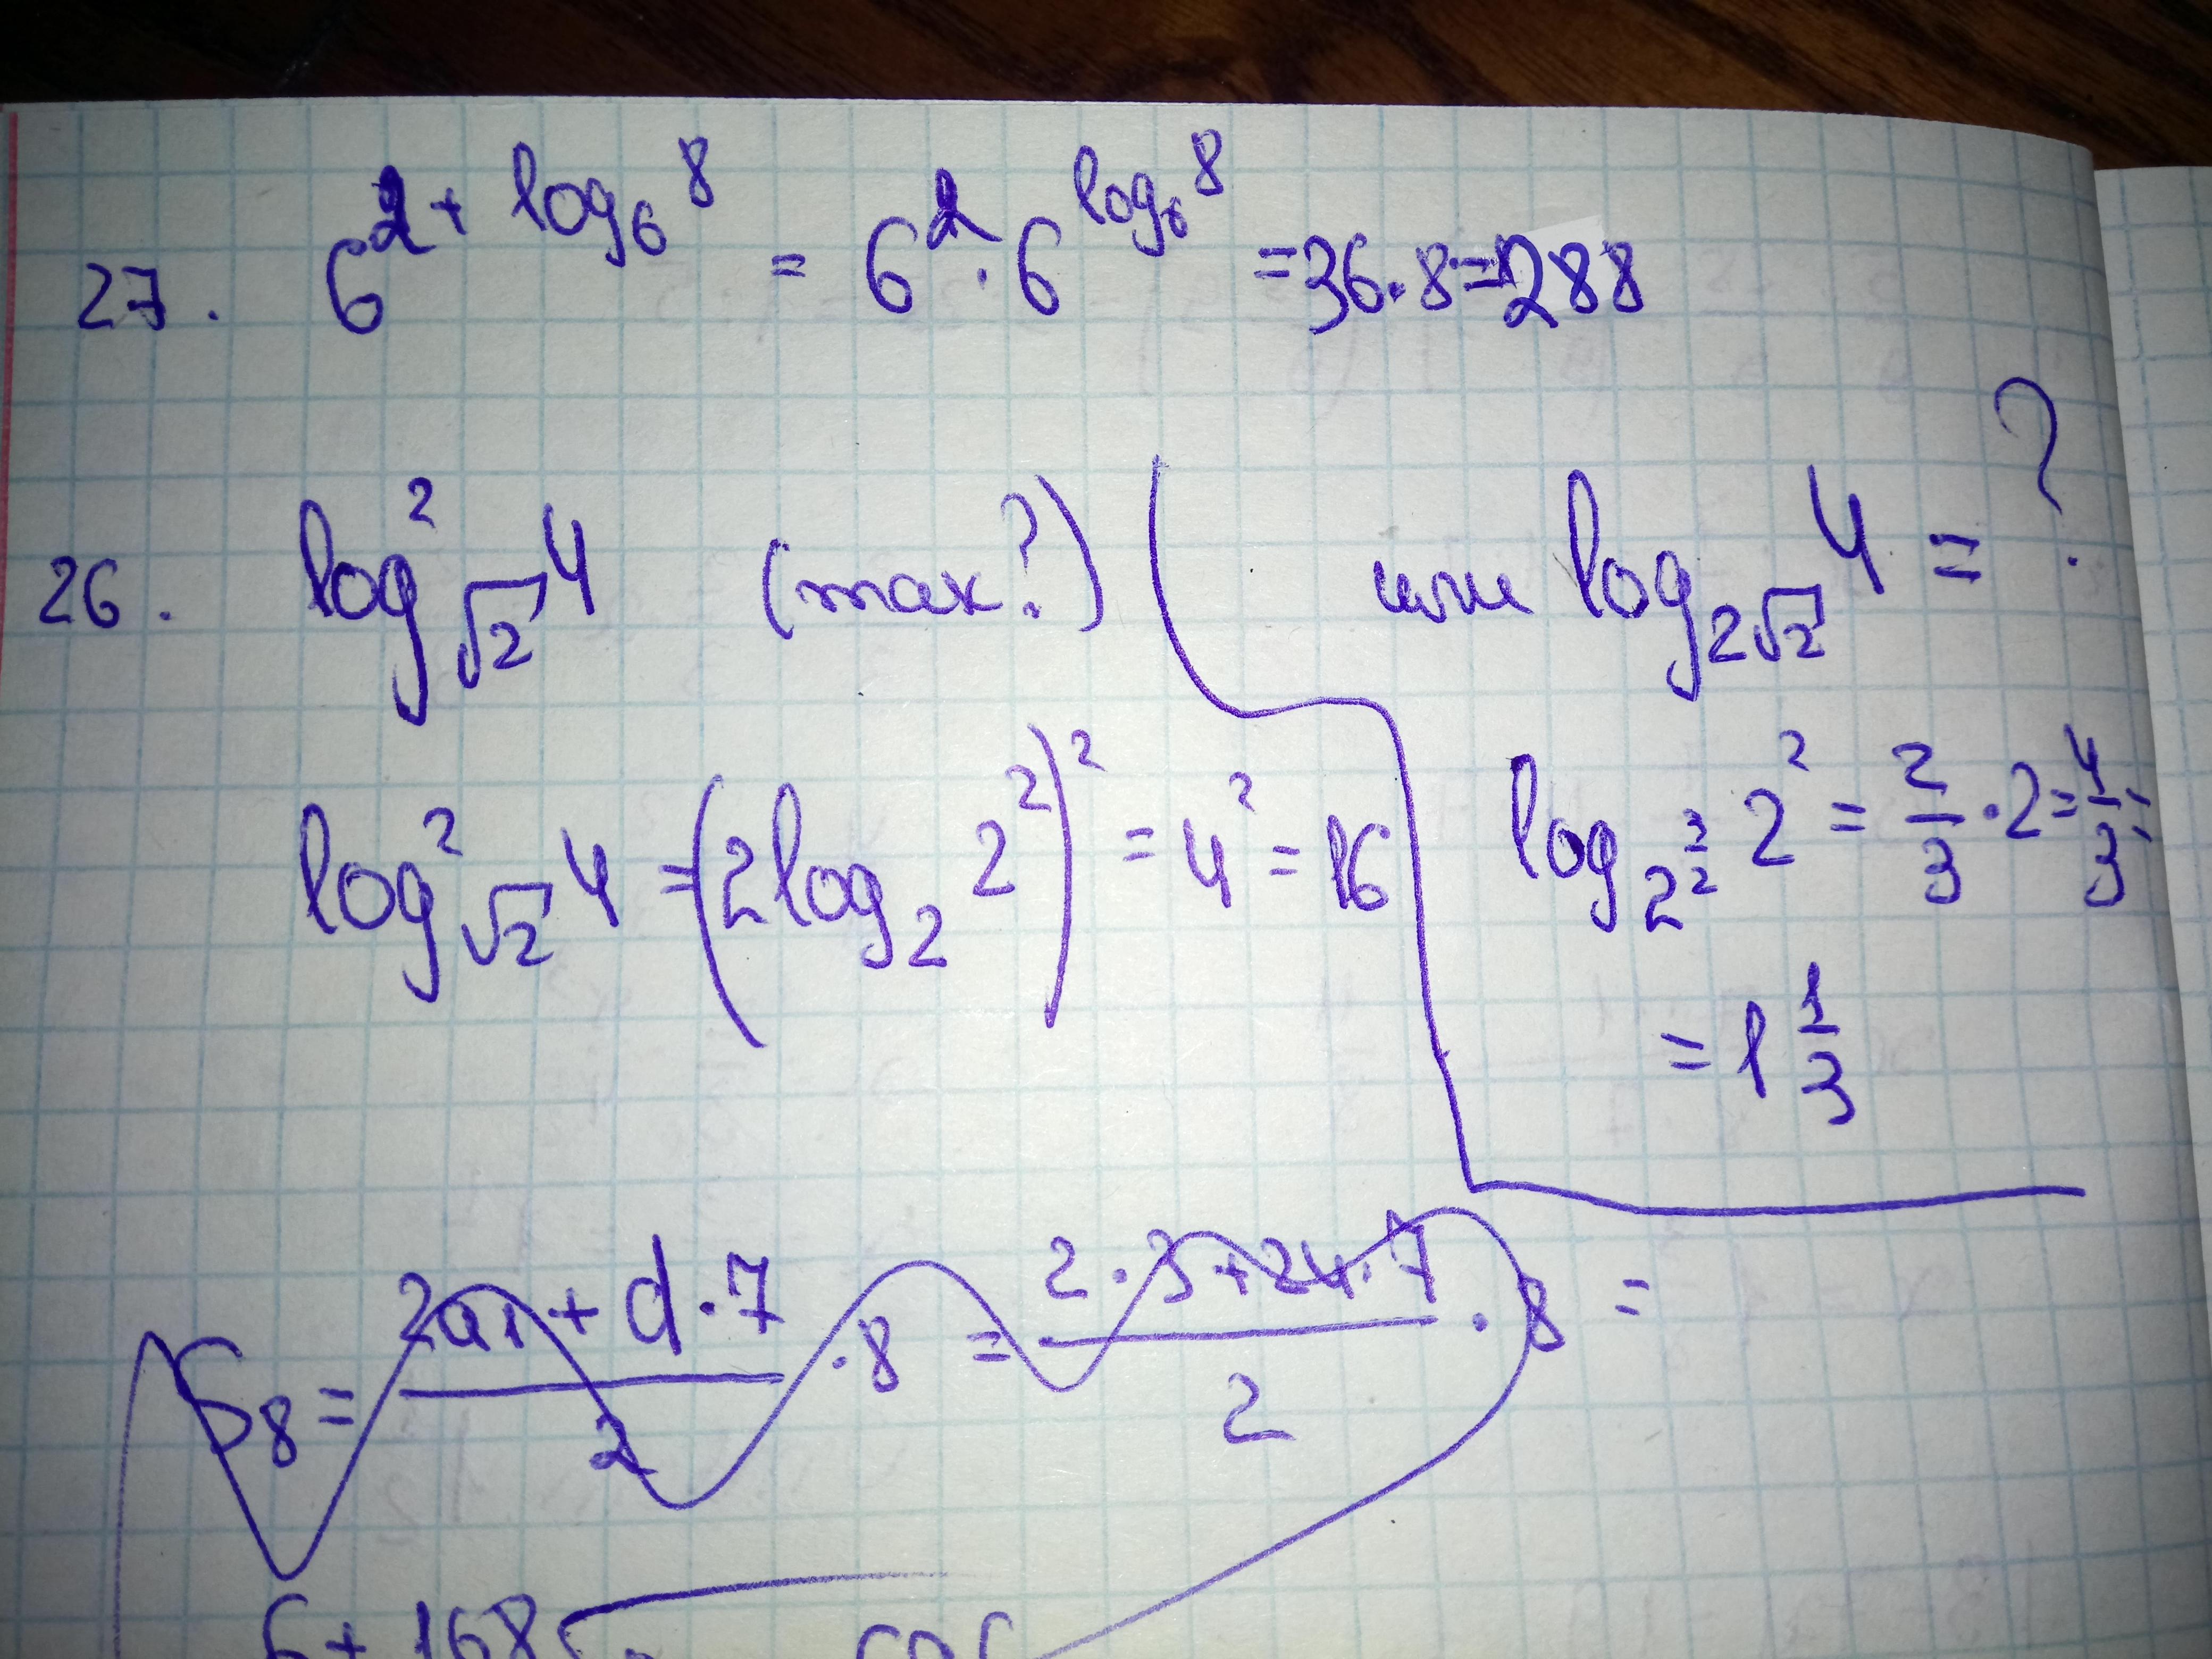 27. 6^{2 + log_6 8} = 6^2 · 6^{log_6 8} = 36 · 8 = 288
26. log^2_{√2} 4 (max?)
log^2_{√2} 4 = (2 log_2 2^2)^2 = 4^2 = 16
или log_{2√2} 4 = ?
log_{2^{3/2}} 2^2 = 2/3 · 2 = 4/3 =
= 1 1/3
S_8 = (2a_1 + d · 7)/2 · 8 = (2 · 3 + 24 · 7)/2 · 8 =
6 + 168